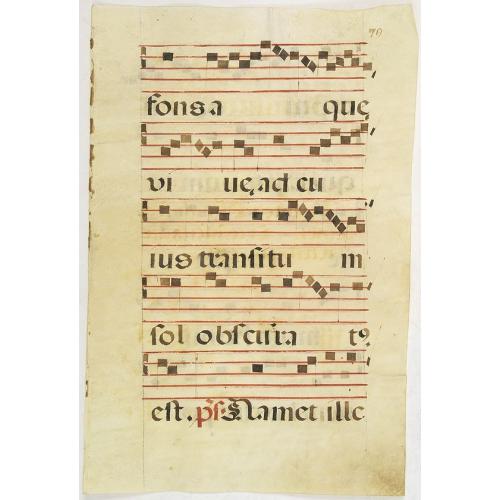 79
fonsa que
vi ue, ad cu
ius transitu m
sol obscura t9
est. ps. Nam et ille